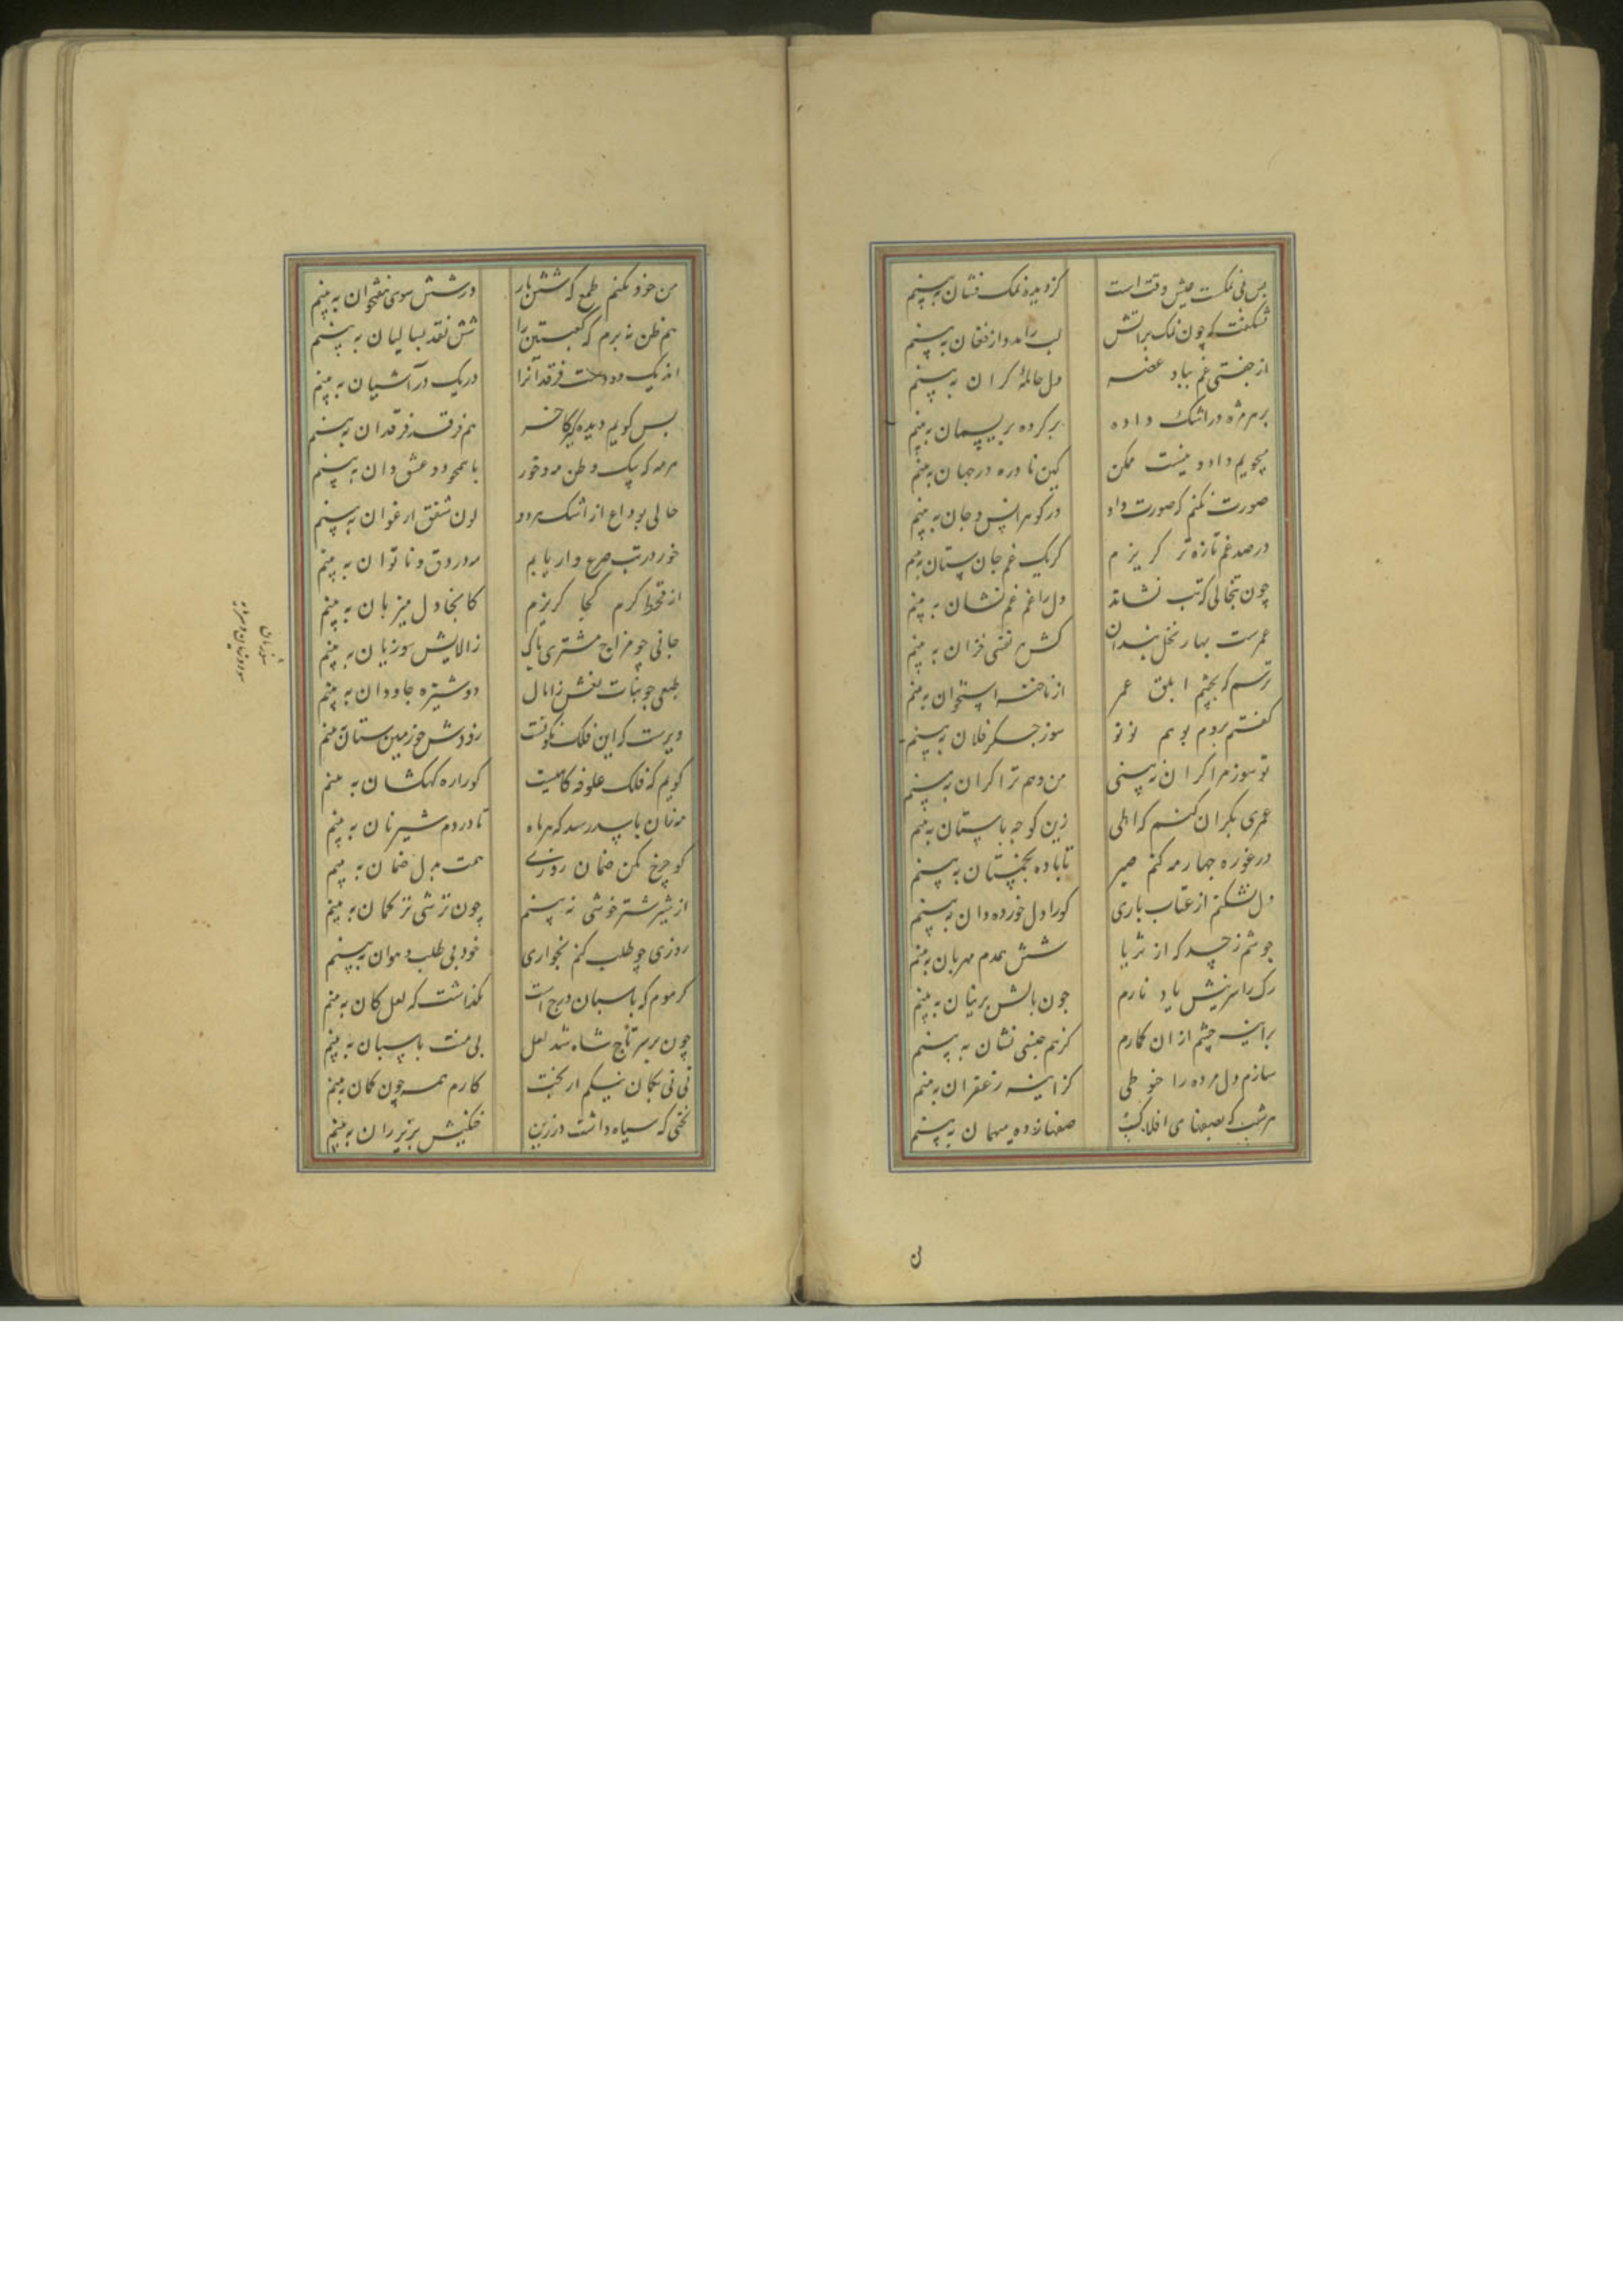 بس بی نمکست عیش وقت است
کز دیده نمک فشان ببینم
شکفت که چون نمک بر آتش
لب را مدد از فغان ببینم
از جفتی غم بباد غصه
دل حامله کران به بینم
بر هر مژه در اشک داده
بر کرده بریسمان ببینم
میجویم داد و نیست ممکن
کین نادره در جهان ببینم
صورت نکنم که صورت داد
در کوهر انس و جان به بینم
در صد غم تازه تر کریزم
کر یک غم جان ستان ببینم
چون تبخالی که تب نشاند
دل را غم غم نشان به بینم
عمرست بهار نخل بندان
کش هر نفسی خزان به بینم
ترسم که بچشم ابلق عمر
از ناخنه استخوان ببینم
کفتم بروم بوهم نو نو
سوز جکر فلان ببینم
تو سوز مرا کران نه بینی
من وهم ترا کران ببینم
عمری بکران کنم که اهلی
زین کوچه باستان ببینم
در غوره چهار مه کنم صبر
تا باده بخمستان به بینم
دل نشکنم از عتاب باری
کو را دل خورده دان ببینم
جوشم ز حسد که از ثریا
شش همدم مهربان ببینم
رک را سر نیش یاد نارم
چون بالش پرنیان به بینم
بر آینه چشم از آن کمارم
کز هم جنسی نشان به بینم
سازم دل مرده را حنوطی
کز آینه زعفران ببینم
هر شب که بصفهای افلاک
صفها زده میهمان به بینم
ن
من خود نکنم طمع که شش بار
در شش سوی هفتخوان به بینم
هم ظن نه برم که کعبتین را
شش نقد بسالیان به بینم
اندیک دو دوست فرقدانرا
در یک در آشیان به بینم
بس کویم دیده کیر کاخر
هم فرقت فرقدان به بینم
هر مه که بیک وطن مه و خور
با هم چو دو عشق دان به بینم
حالی بوداع از اشک هر دو
لون شفق ارغوان به بینم
خور در تب صرع دار یابم
مه در دق و ناتوان به بینم
از قحط کرم کجا کریزم
کانجا دل میزبان به بینم
جانی چو مزاج مشتری پاک
ز الایش سوزیان به بینم
طبعی چو بنات نعش ز آمال
دوشیزه جاودان به بینم
دیرست که این فلک نکونست
زودش چو زمین ستان بینم
کویم که فلک علوفه کاهیست
کو را ره کهکشان به بینم
مه نان باید رسد که هر ماه
تا در دم شیر نان به بینم
کو چرخ مکن ضمان روزی
همت بدل ضمان به بینم
از شیر شتر خوشی نه بینم
چون ترشی ترکمان به بینم
روزی چو طلب کنم بخواری
خود بی طلب و هوان به بینم
کر موم که پاسبان درج است
نکذاشت که لعل کان به بینم
چون بر سر تاج شاه شد لعل
بی منت پاسبان به بینم
نی نی بکمان نیکم ار بخت
کارم همه چون کمان به بینم
بختی که سیاه داشت در زین
خنکیش بزیر ران به بینم